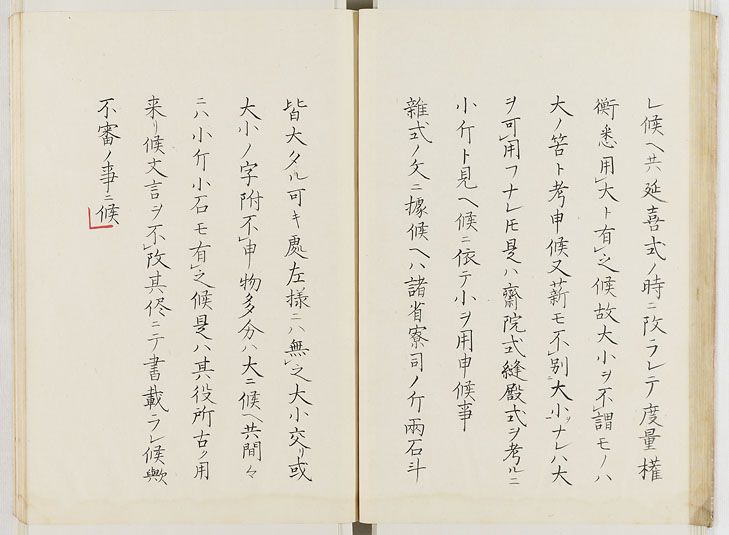 レ候ヘ共延喜式ノ時ニ改ラレテ度量權
衡悉用大ト有之候故大小ヲ不謂モノハ
大ノ筈ト考申候又薪モ不別大小ナレハ大
ヲ可用フナレ𪜈是ハ齋院式縫殿式ヲ考ルニ
小斤ト見ヘ候ニ依テ小ヲ用申候事
雜式ノ文ニ據候ヘハ諸省寮司ノ斤兩石斗
皆大タル可キ處左様ニハ無之大小交リ或
大小ノ字附不申物多分ハ大ニ候ヘ共間々
ニハ小斤小石モ有之候是ハ其役所古ノ用
来リ候文言ヲ不改其侭ニテ書載ラレ候歟
不審ノ事ニ候